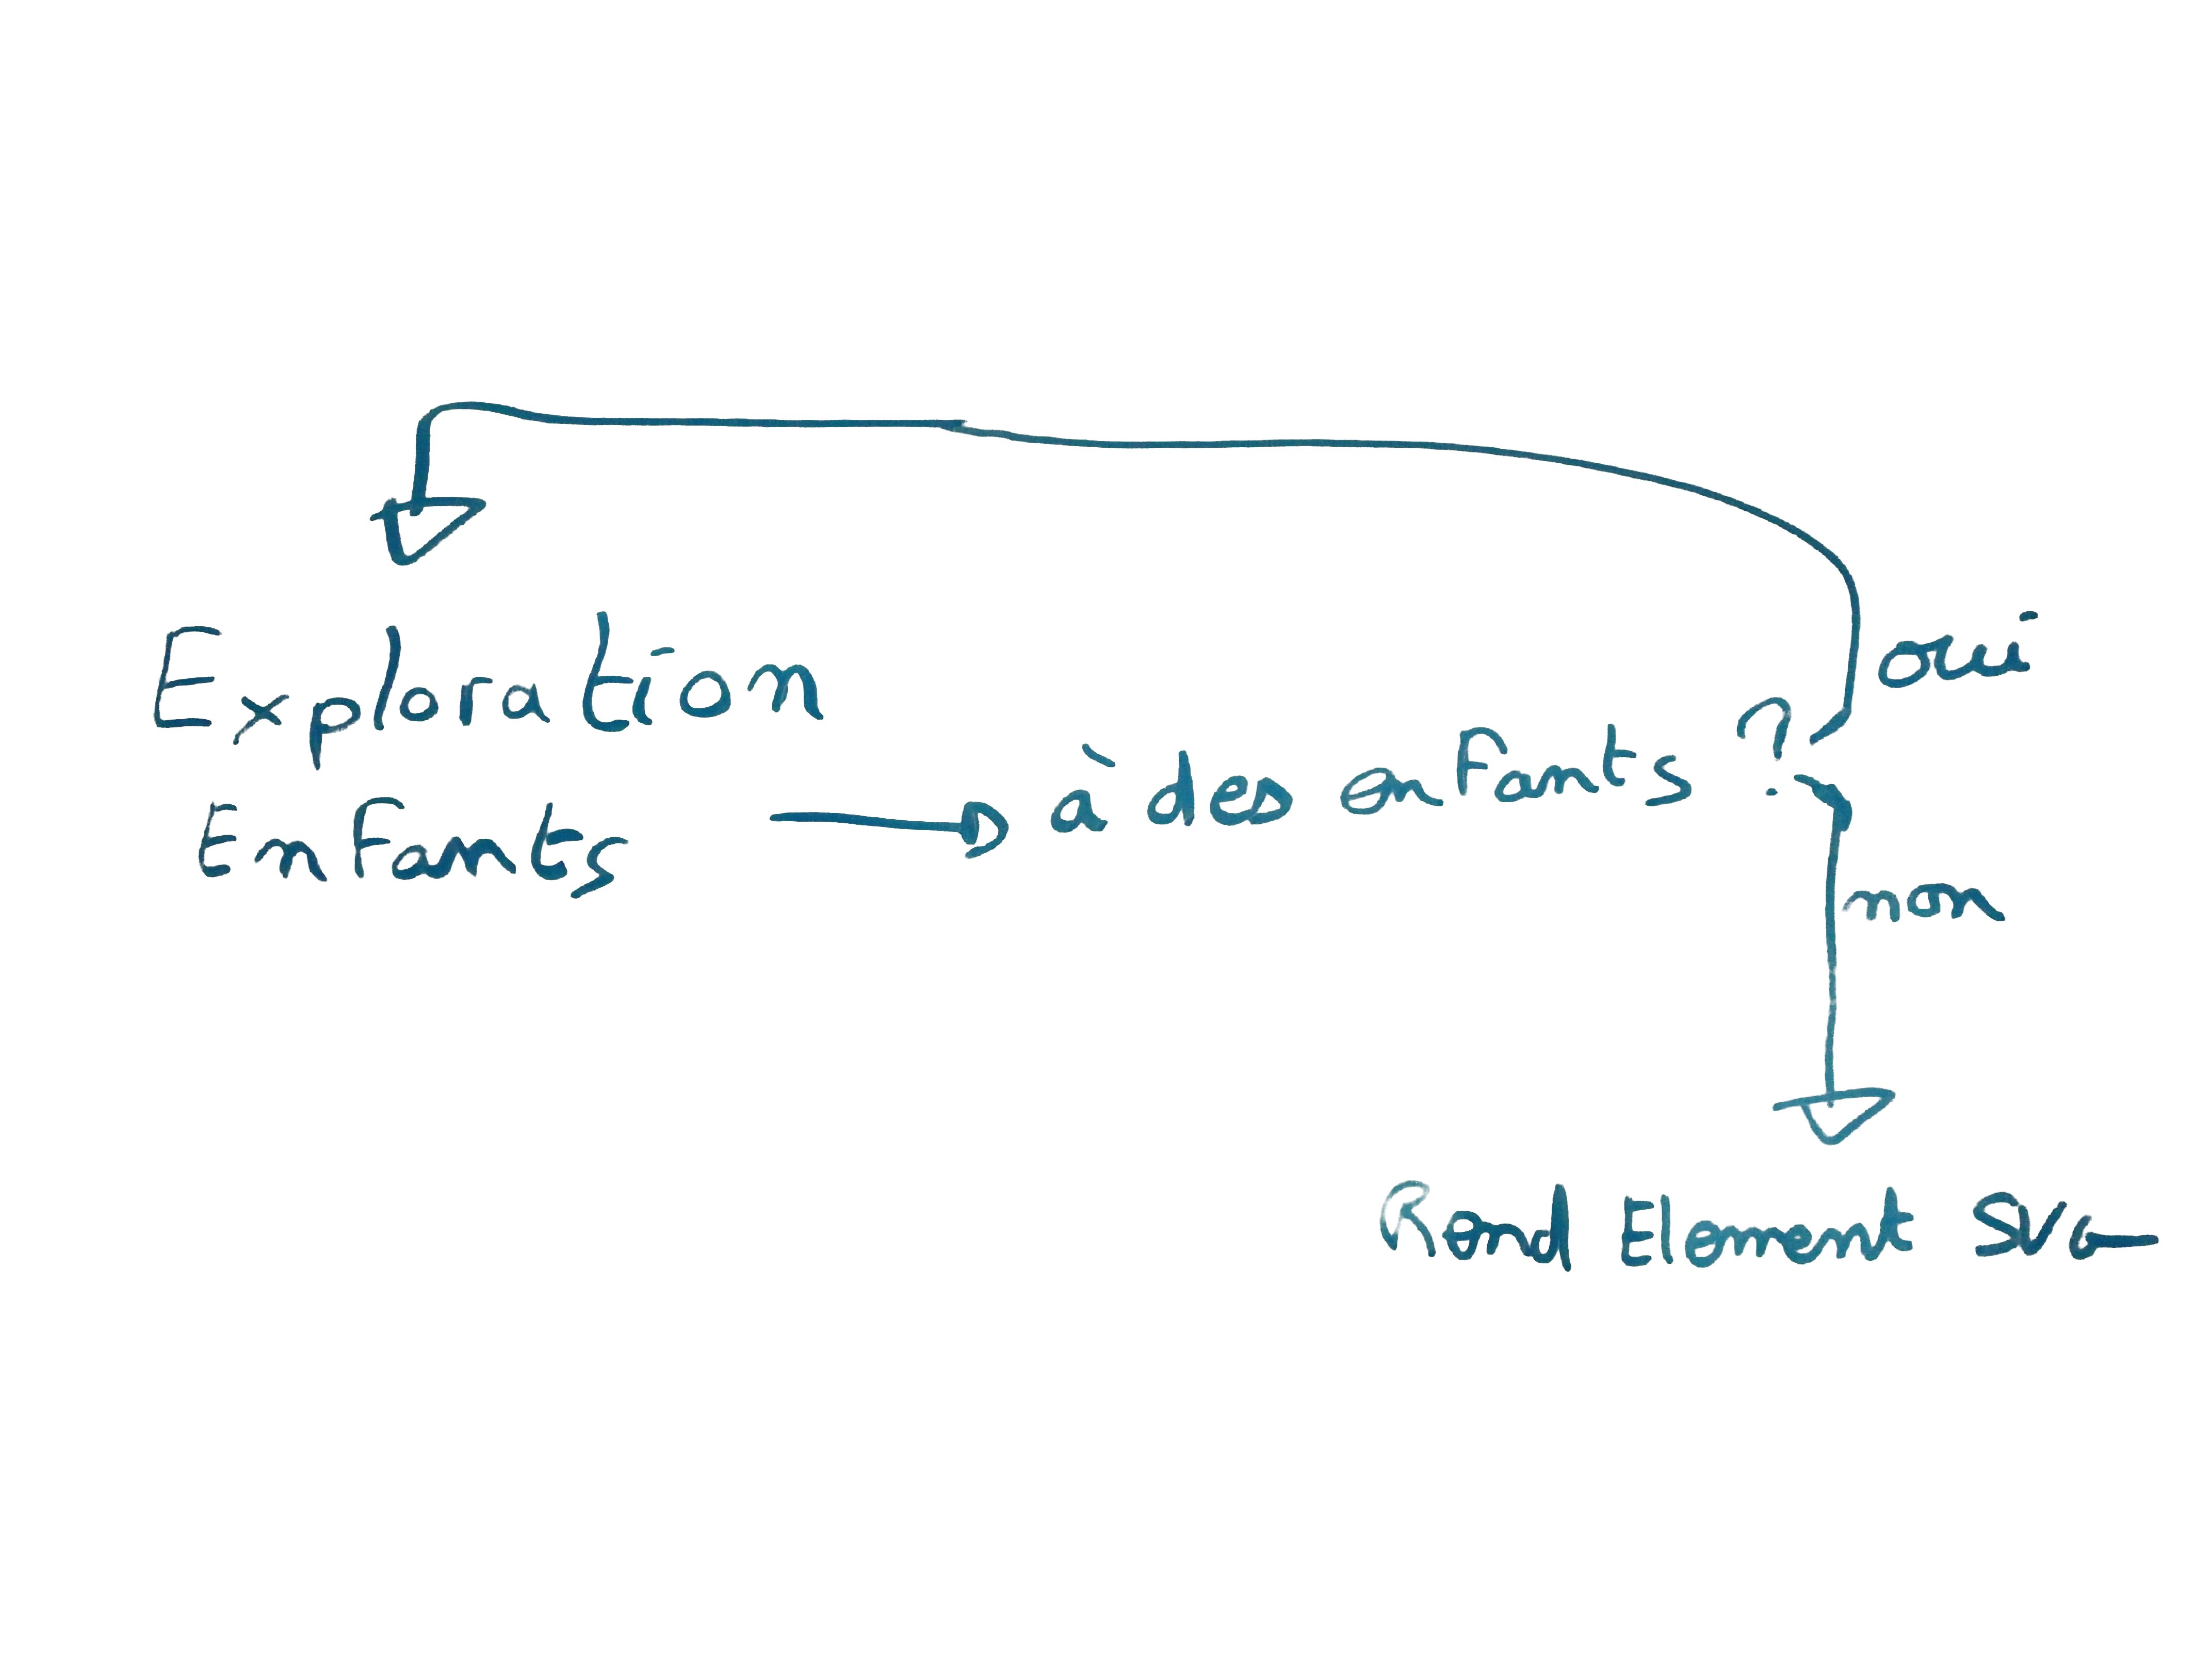 Exploration
Enfants
à des enfants ?
oui
non
Rend Element SVG